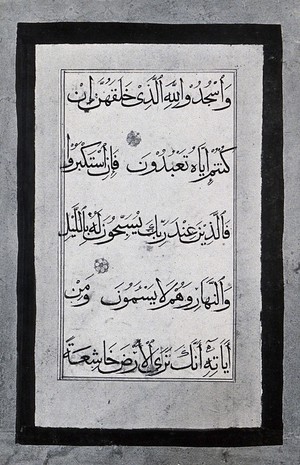 وَأَسْجُدُوا لِلَّهِ ٱلَّذِى خَلَقَهُنَّ إِن
كُنتُمْ إِيَّاهُ تَعْبُدُونَ فَإِنِ ٱسْتَكْبَرُوا
فَٱلَّذِينَ عِندَ رَبِّكَ يُسَبِّحُونَ لَهُ بِٱللَّيْلِ
وَٱلنَّهَارِ وَهُمْ لَا يَسْـَٔمُونَ وَمِنْ
أٰيَاتِهِ أَنَّكَ تَرَى ٱلْأَرْضَ خَاشِعَةً